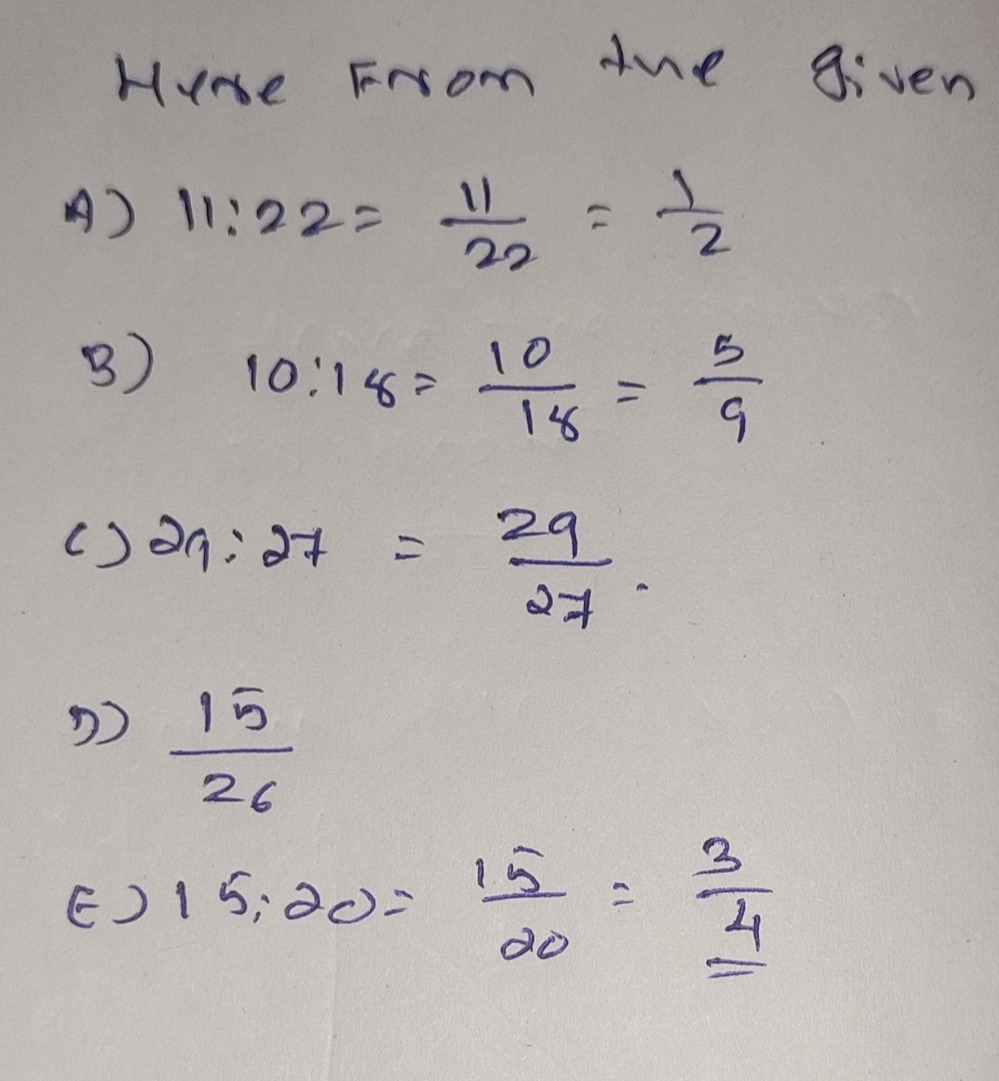 Here From the given
A) 11:22 = 11/22 = 1/2
B) 10:18 = 10/18 = 5/9
C) 29:27 = 29/27.
D) 15/26
E) 15:20 = 15/20 = 3/4